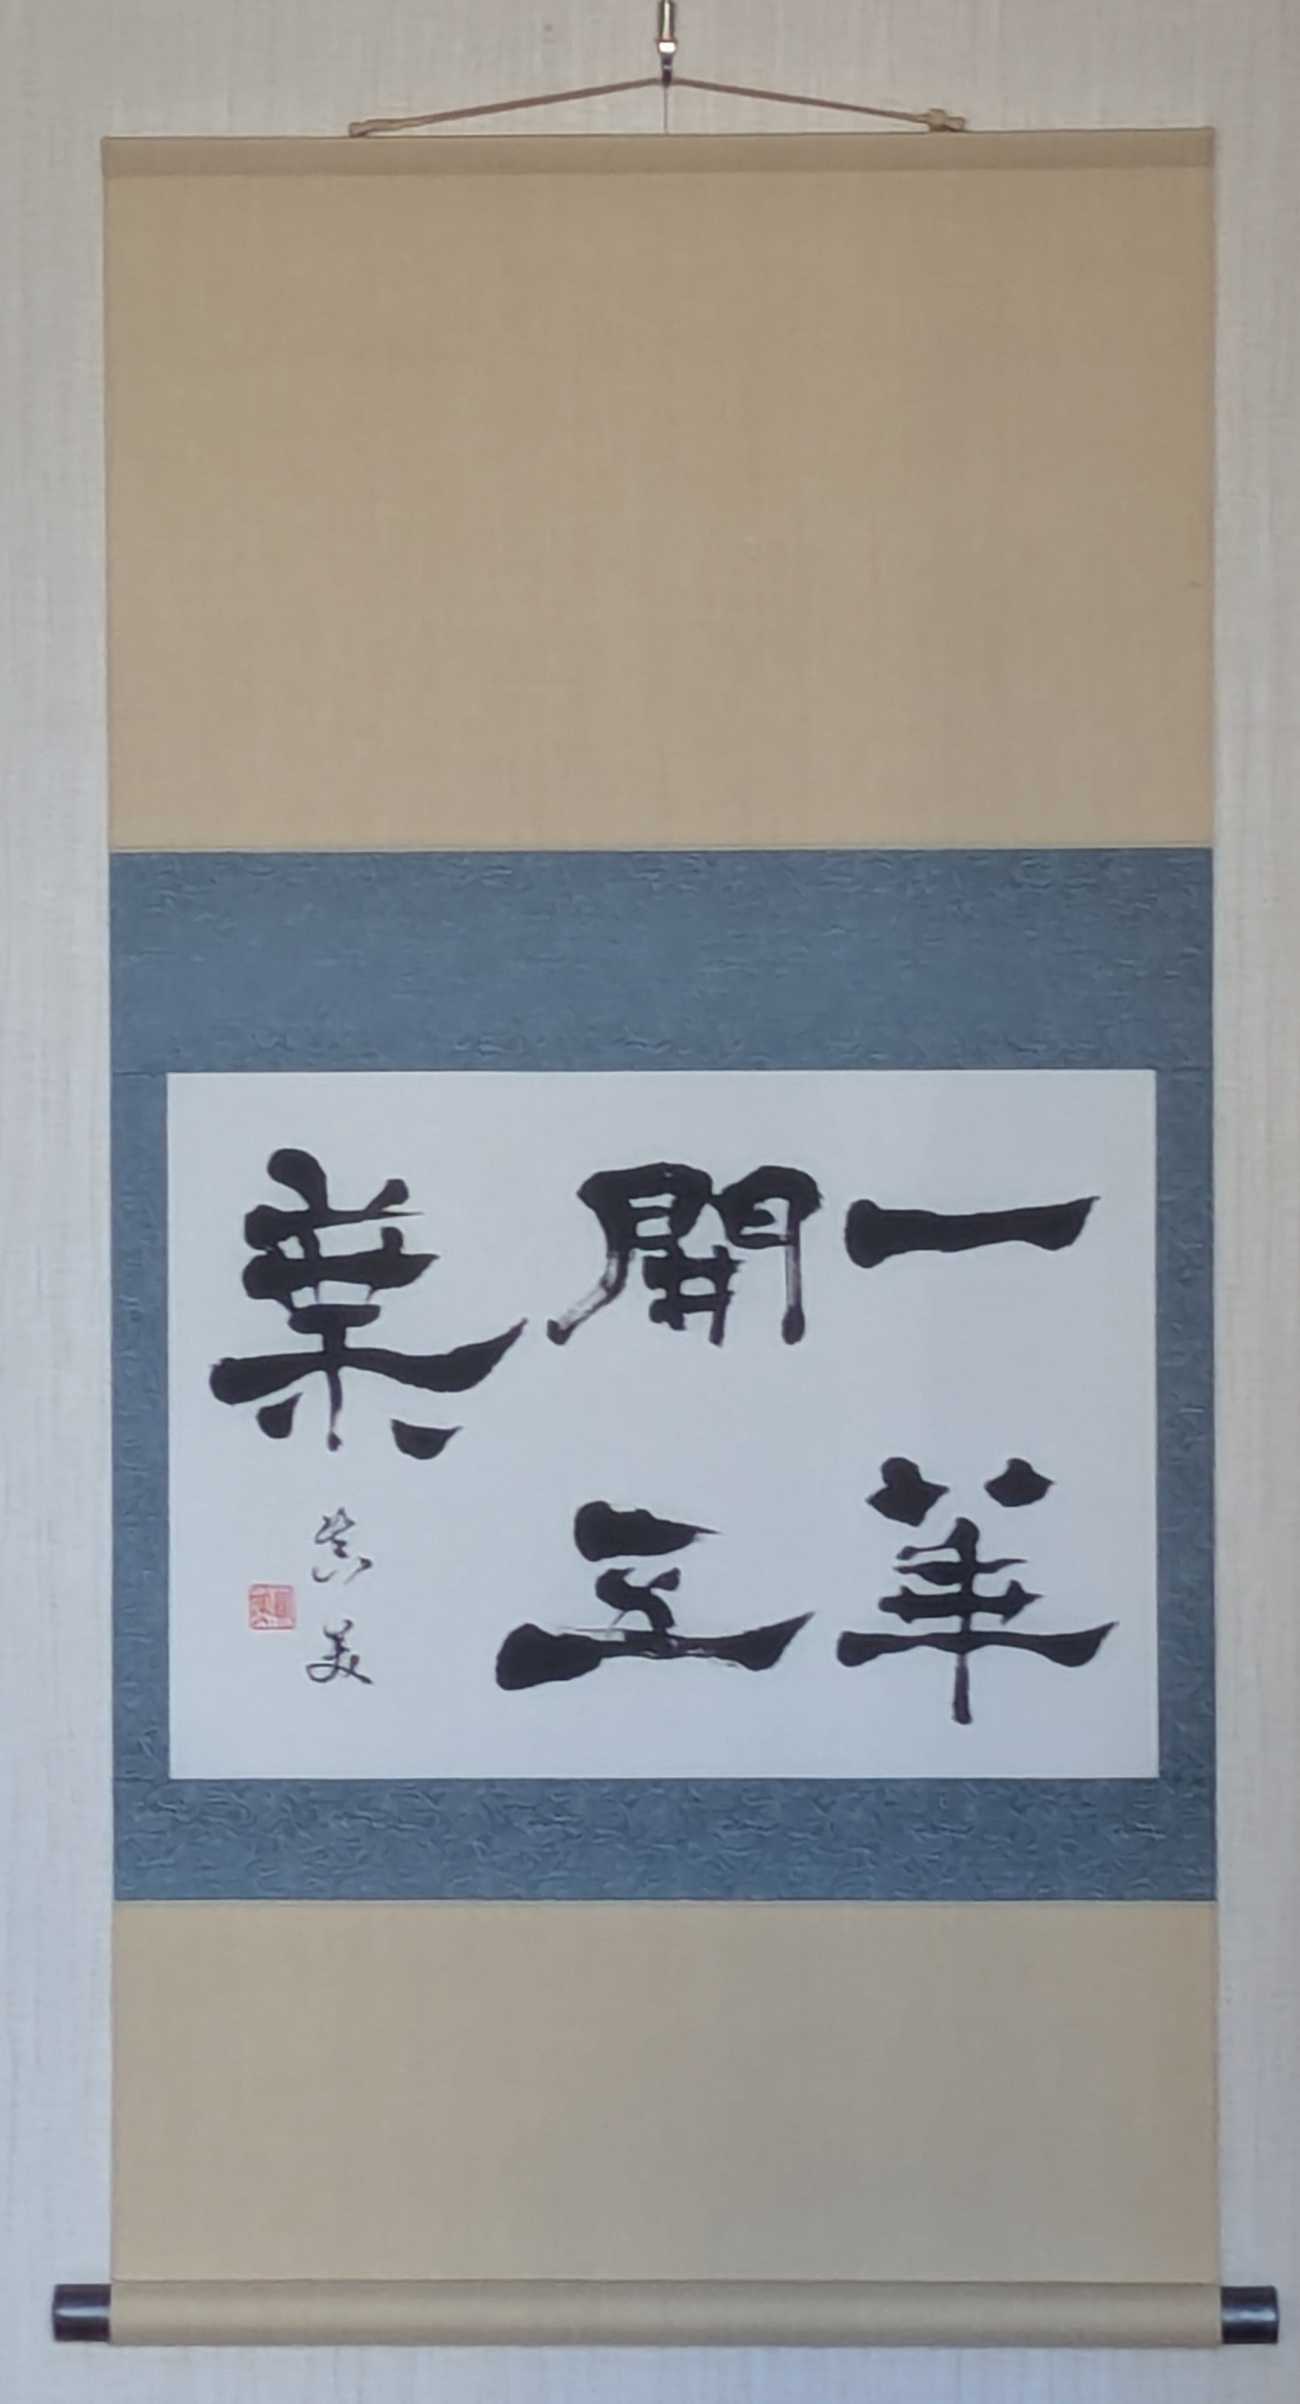 一華
開五
葉
真美